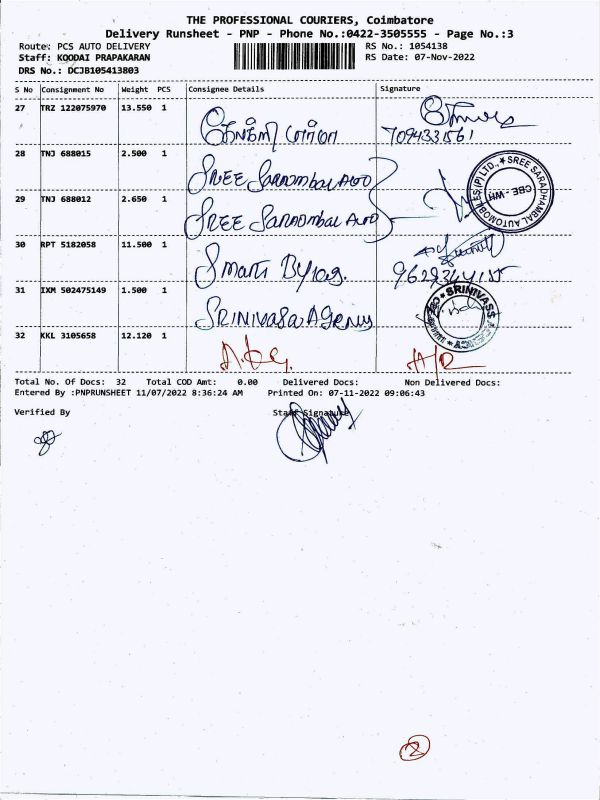 THE PROFESSIONAL COURIERS, Coimbatore
Delivery Runsheet - PNP - Phone No.:0422-3505555 - Page No.:3
Route: PCS AUTO DELIVERY
RS No.: 1054138
Staff: KOODAI PRAPAKARAN
RS Date: 07-Nov-2022
DRS No.: DCJB105413803
S No Consignment No Weight PCS Consignee Details Signature
27 TRZ 122075970 13.550 1
7094331561
28 TNJ 688015 2.500 1 SREE Saradmbal Auto
29 TNJ 688012 2.650 1 SREE Saradmbal Auto
SREE SARADHAMBAL AUTOMOBILES (P) LTD.,
CBE - WH
30 RPT 5182058 11.500 1 Smart
31 IXM 502475149 1.500 1 SRINIVASA AGENCY
SRINIVASA
32 KKL 3105658 12.120 1
Total No. Of Docs: 32 Total COD Amt: 0.00 Delivered Docs: Non Delivered Docs:
Entered By :PNPRUNSHEET 11/07/2022 8:36:24 AM Printed On: 07-11-2022 09:06:43
Verified By Staff Signature
2